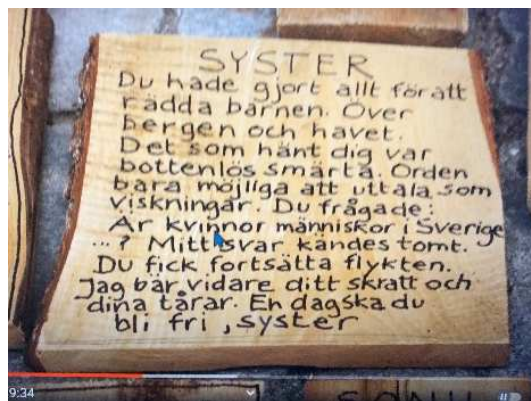 SYSTER
Du hade gjort allt för att
rädda barnen. Över
bergen och havet.
Det som hänt dig var
bottenlös smärta. Orden
bara möjliga att uttala som
viskningar. Du frågade:
Är kvinnor människor i Sverige
...? Mitt svar kändes tomt.
Du fick fortsätta flykten.
Jag bär vidare ditt skratt och
dina tårar. En dag ska du
bli fri, syster
9:34